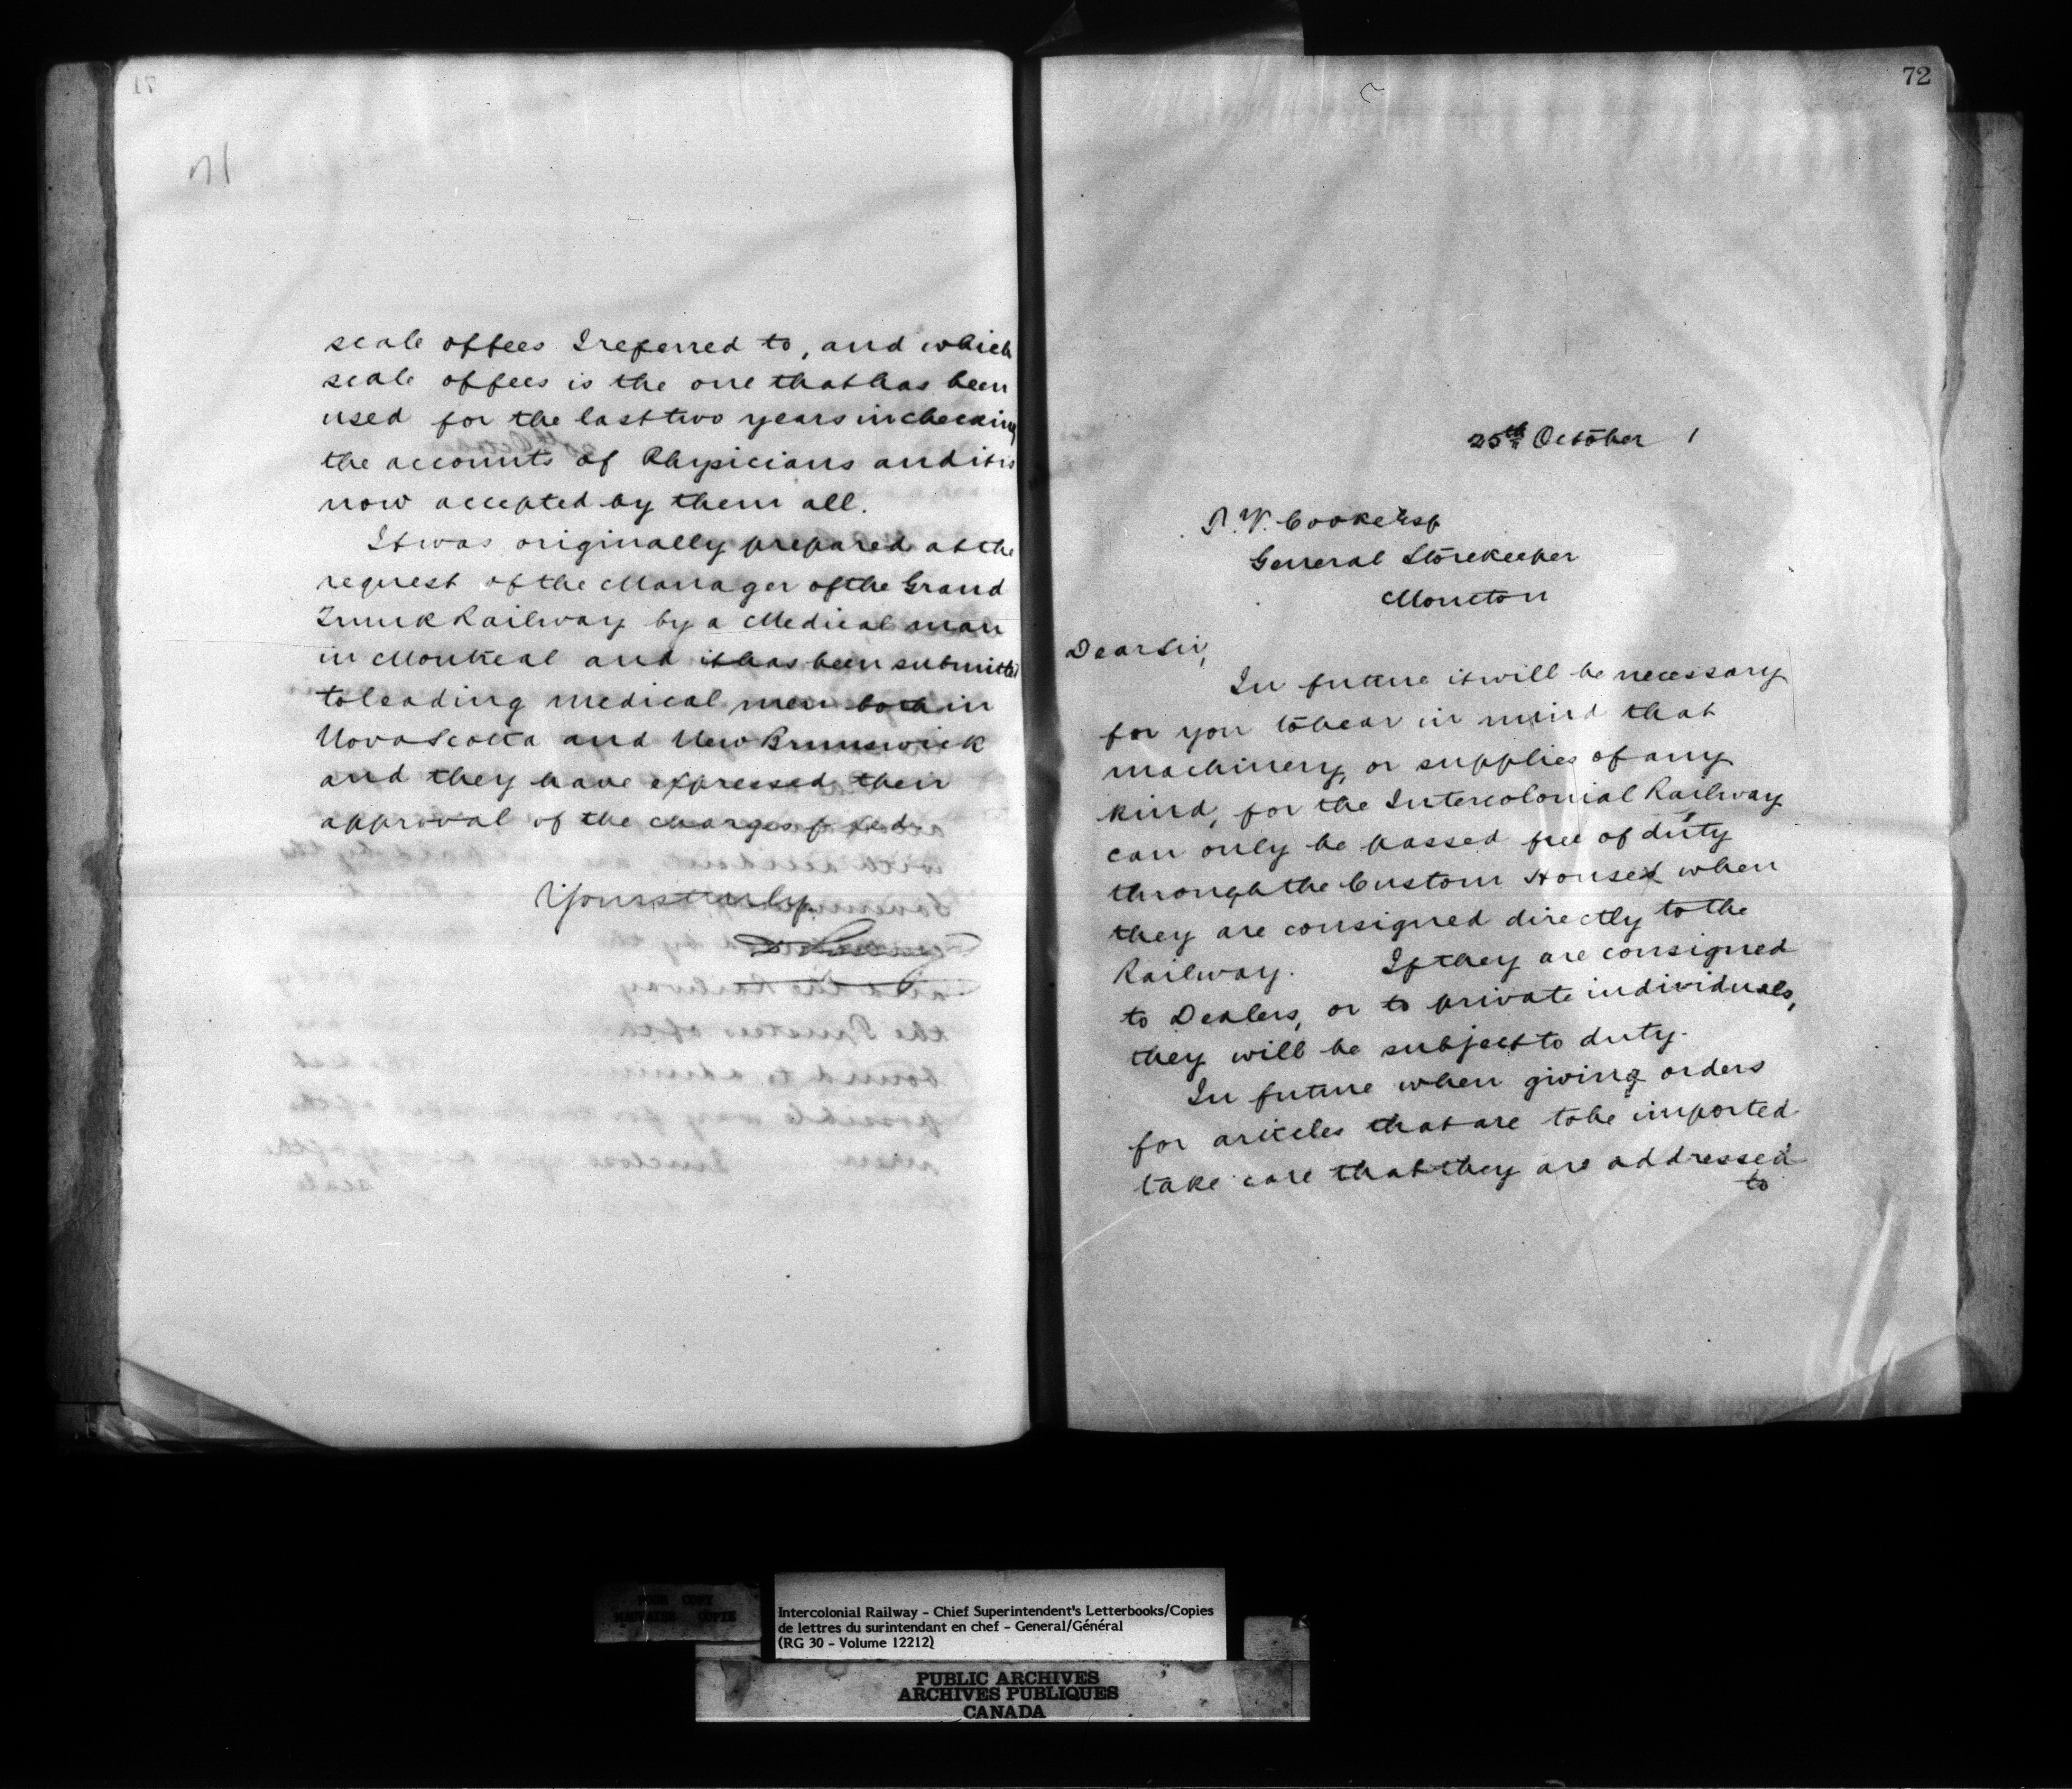 71
71
scale of fees I referred to, and which
scale of fees is the one that has been
used for the last two years in checking
the accounts of Physicians and it is
now accepted by them all.
It was originally prepared at the
request of the Manager of the Grand
Trunk Railway by a Medical man
in Montreal and it has been submitted
to leading medical men both in
Nova Scotia and New Brunswick
and they have expressed their
approval of the charges fixed.
Yours truly
72
25th October 1
P. V. Cooke Esq
General Storekeeper
Moncton
Dear Sir,
In future it will be necessary
for you to bear in mind that
machinery, or supplies of any
kind, for the Intercolonial Railway
can only be passed free of duty
through the Custom Houses when
they are consigned directly to the
Railway. If they are consigned
to Dealers, or to private individuals,
they will be subject to duty.
In future when giving orders
for articles that are to be imported
take care that they are addressed
to
POOR COPY
MAUVAISE COPIE
Intercolonial Railway - Chief Superintendent's Letterbooks/Copies
de lettres du surintendant en chef - General/Général
(RG 30 - Volume 12212)
PUBLIC ARCHIVES
ARCHIVES PUBLIQUES
CANADA